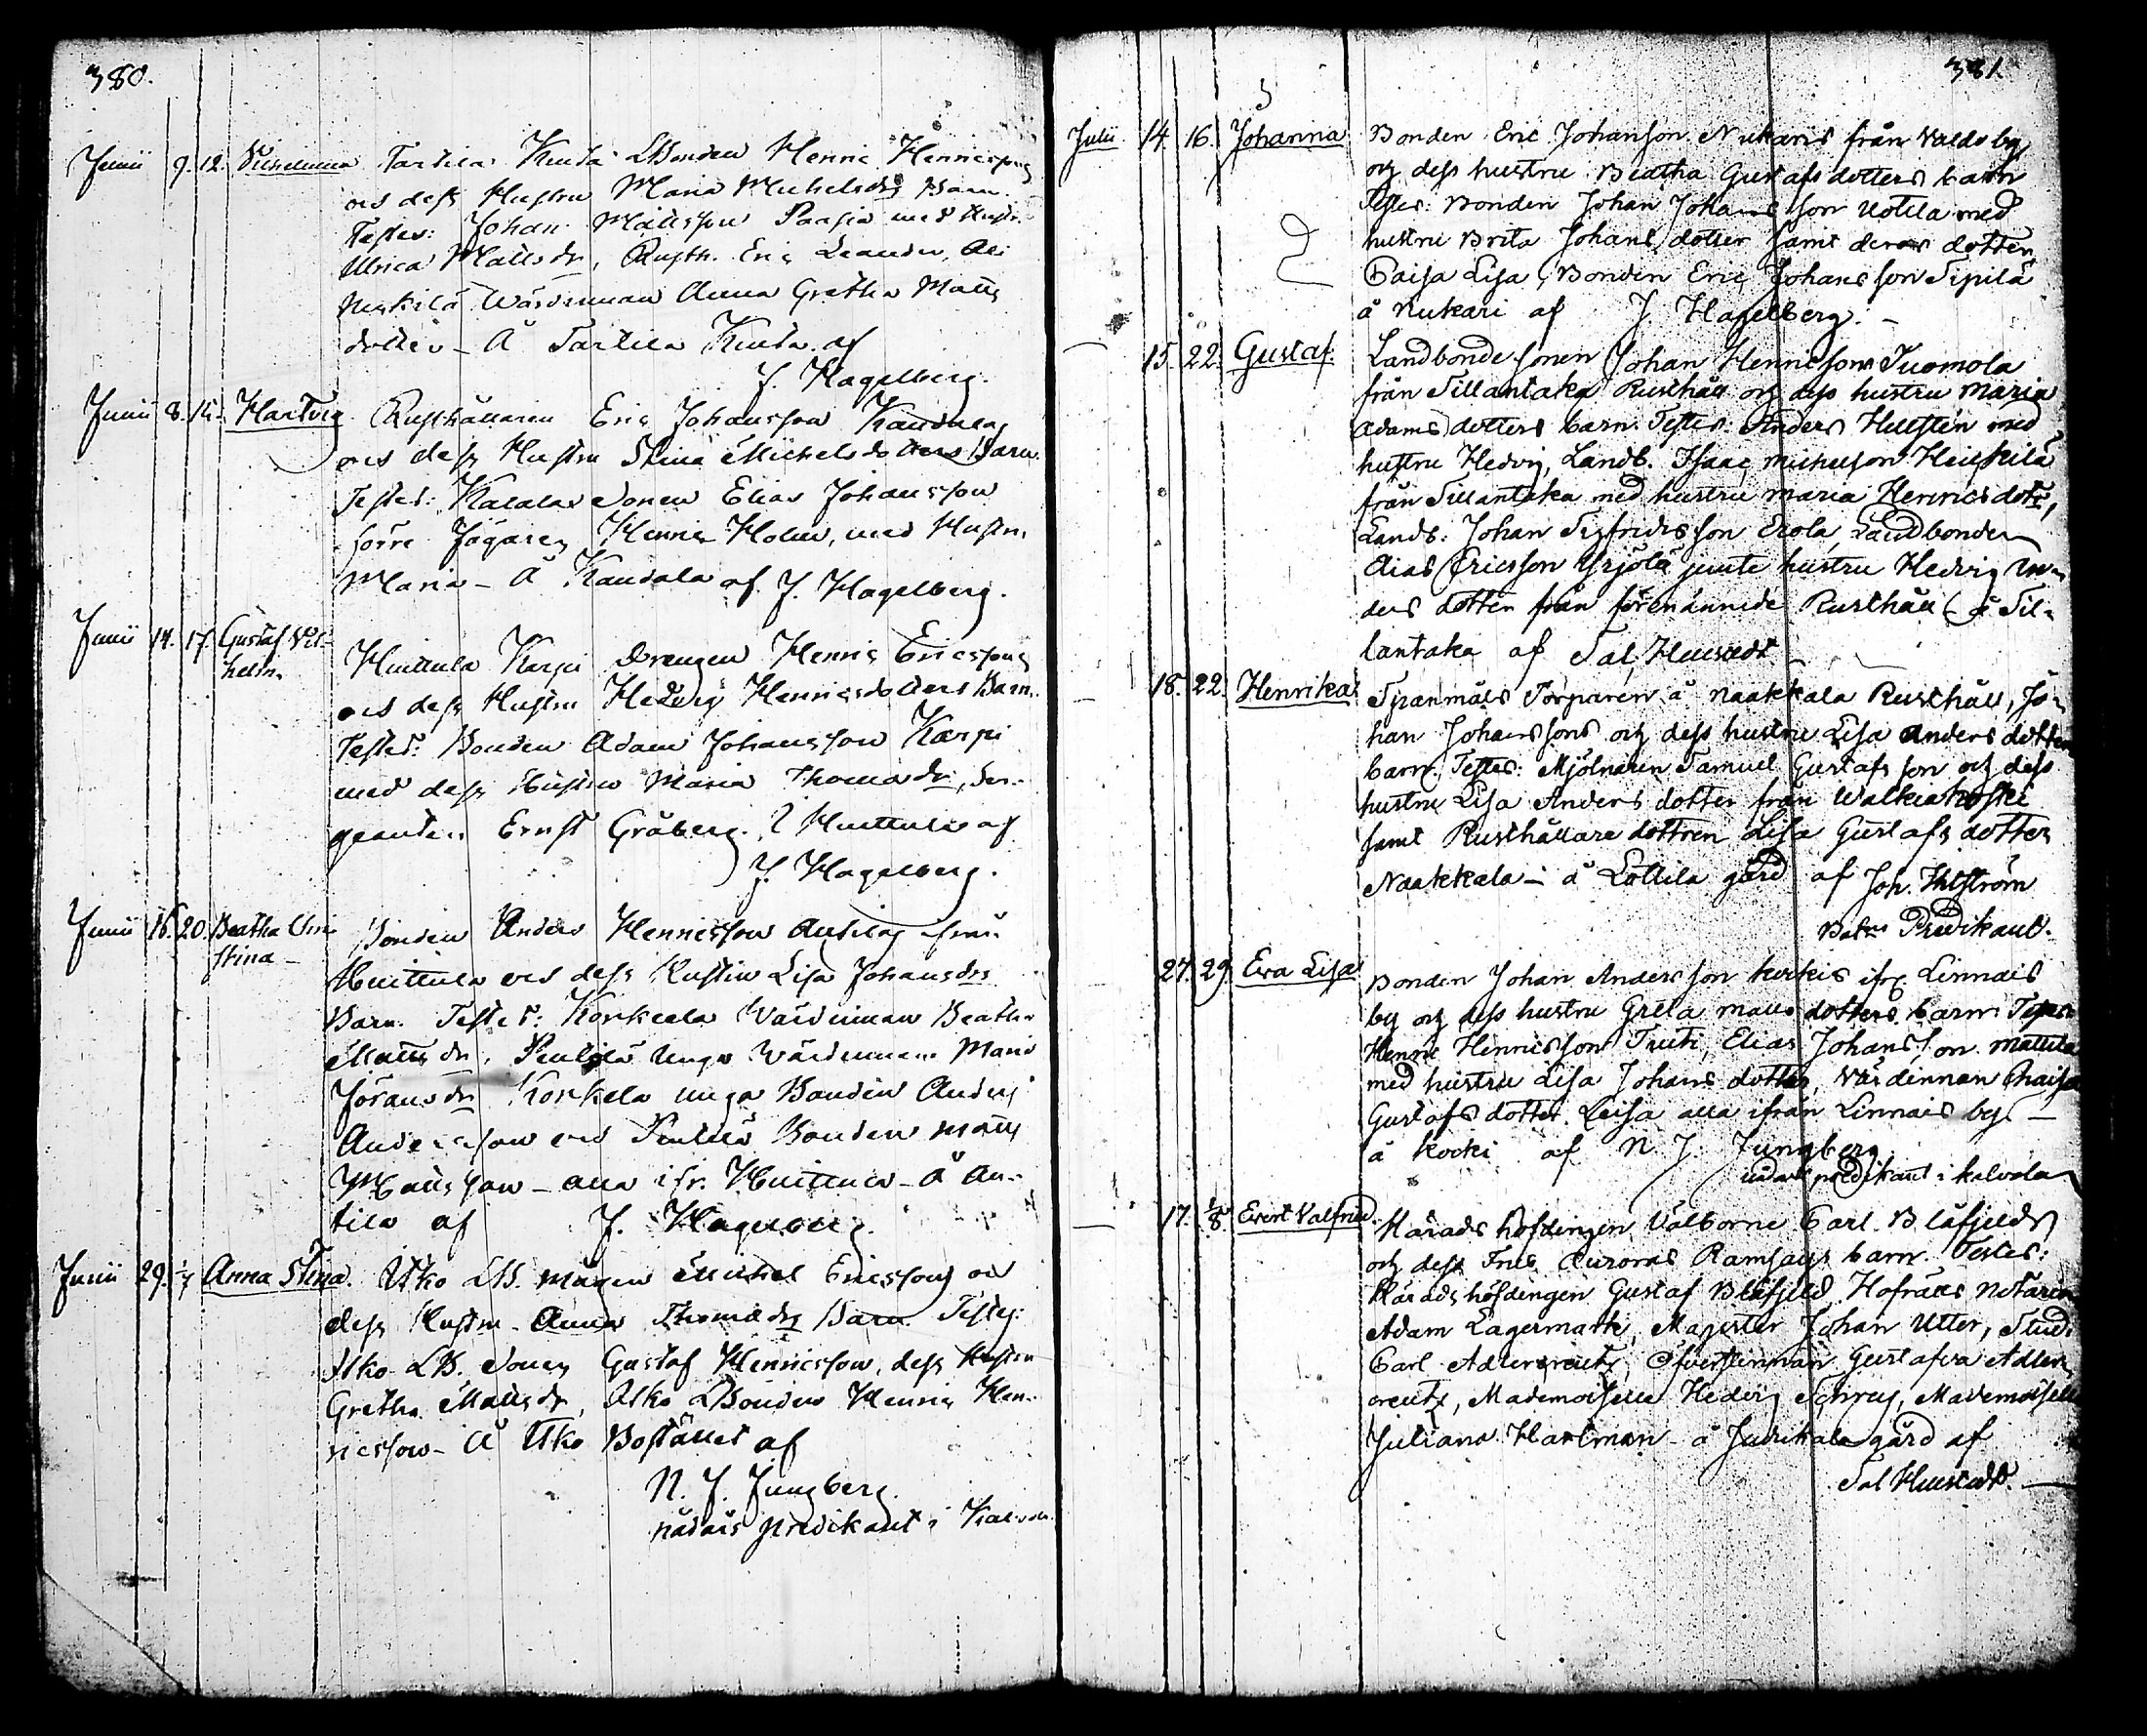 380.
Junii 9. 12. Vilhelmina Tartila Kurta LBonden Henric Henricssons
och dess Hustru Maria Michelsdrs Barn.
Testes: Johan Mattsson Paasia med Hustr.
Ulrica Mattsdr, Rusth. Eric Leander,
Neskilä Wärdinnan Anna Gretha Matts
dotter - Å Tartila Kurta af
J. Hagelberg.
Junii 8. 14. Hartvig Rusthållaren Eric Johansson
och dess Hustru Stina Michelsdotters Barn.
Testes: Sonen Elias Johansson
förre Jägaren Henric Holm, med Hustru
Maria - Å Kandala af J. Hagelberg.
Junii 14. 17. Gustaf Vil-
helm. Huittula Karpi Drengen Henric Ericssons
och dess Hustru Hedvig Henricsdotters Barn.
Testes: Bonden Adam Johansson Karpi
med dess Hustru Maria Thomadr, Ser-
geanten Ernst Gråberg. I Huittula af
J. Hagelberg.
Junii 16. 20. Beatha Chri
stina - Bonden Anders Henricsson Antilas från
Huittula och dess Hustru Lisa Johansdrs
Barn. Testes: Korkeela Värdinnan Beatha
Mattsdr, Penttilä unga Wärdinnan Maria
Göransdr Korkela unga Bonden Anders
Andersson och Penttilä Bonden Matts
Mattsson - alla ifr. Huittula - Å An-
tila af J. Hagelberg.
Junii 29. 1/7 Anna Stina. Utko LB. Mågen Michel Ericssons och
dess Hustru Anna Thomædrs Barn Testes:
Utko LB. Sonen Gustaf Henricsson, dess Hustru
Gretha Mattsdr, Utko LBonden Henric Hen-
ricsson - Å Utko Bostället af
N. J. Jungberg.
nådårs predikant i
381.
Julii 14. 16. Johanna Bonden Eric Johansson Nukaris från Valdo by
och dess hustru Beatha Gustafsdotters barn
Testes: Bonden Johan Johansson Uotila med
hustru Brita Johansdotter samt deras dotter
Caisa Lisa, Bonden Eric Johansson Sipilä
å Nukari af J. Hagelberg. -
15. 22. Gustaf. Landbondesonen Johan Henricsons Tuomola
från Sillantaka Rusthåll och dess hustru Maria
Adamsdotters barn. Testes: Anders Hellstén med
hustru Hedvig, Landb. Isaac Michelson Heikkilä
från Sillantaka med hustru Maria Henricsdotr,
Landb. Johan Sigfridsson Erola, Landbonden
Elias Ericsson Yrjölä jemte hustru Hedvig An-
ders dotter från förenämnde Rusthåll - å Sil-
lantaka af Sal.
18. 22. Henrika. Spanmåls Torparen å Naakkala Rusthåll, Jo-
han Johanssons och dess hustru Lisa Andersdotters
barn. Testes: Mjölnaren Samuel Gustafsson och dess
hustru Lisa Andersdotter från Walkiakoski
samt Rusthållare dottren Lisa Gustafsdotter
Naakkala - å Lottila gård af Joh. Ahlström
Batns Predikant.
27. 29. Eva Lisa Bonden Johan Andersson Kockis ifr. Linnais
by och dess hustru Greta Mattsdotters barn. Testes:
Henric Henricsson Truti, Elias Johansson Mattila
med hustru Lisa Johansdotter, Värdinnan Chaisa
Gustafsdotter alla ifrån Linnais by -
å Kocki af N. J. Jungberg
nådårs predikant i Kalvola
17. 1/8 Evert Valfrid. Häradshöfdingen Välborne Carl Blåfjelds
och dess Frus Auroras Ramsays barn. Testes:
Häradshöfdingen Gustaf Blåfjeld, Hofrätts Notarien
Adam Lagermark, Magister Johan Utter, Stud:
Carl Adlercreutz, Öfverstinnan Gustafva Adler-
creutz, Mademoiselle Hedvig, Mademoiselle
Juliana Hartman - å Judikala gård af
Sal